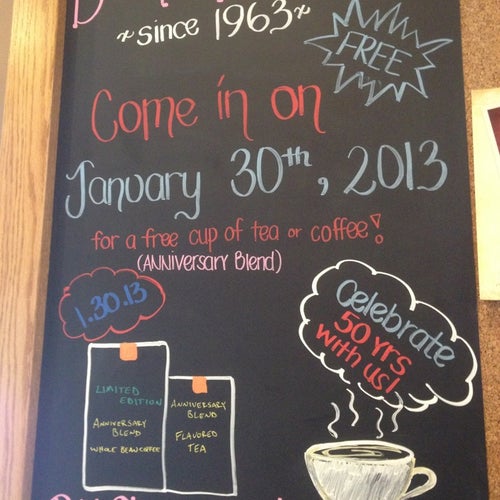 ~since 1963~
FREE
Come in on
January 30th, 2013
for a free cup of tea or coffee!
(ANNiversary Blend)
1.30.13
Celebrate
50 yrs
with us!
LIMITED
EDITION
ANNIVERSARY
BLEND
WHOLE BEAN COFFEE
ANNIVERSARY
BLEND
FLAVORED
TEA